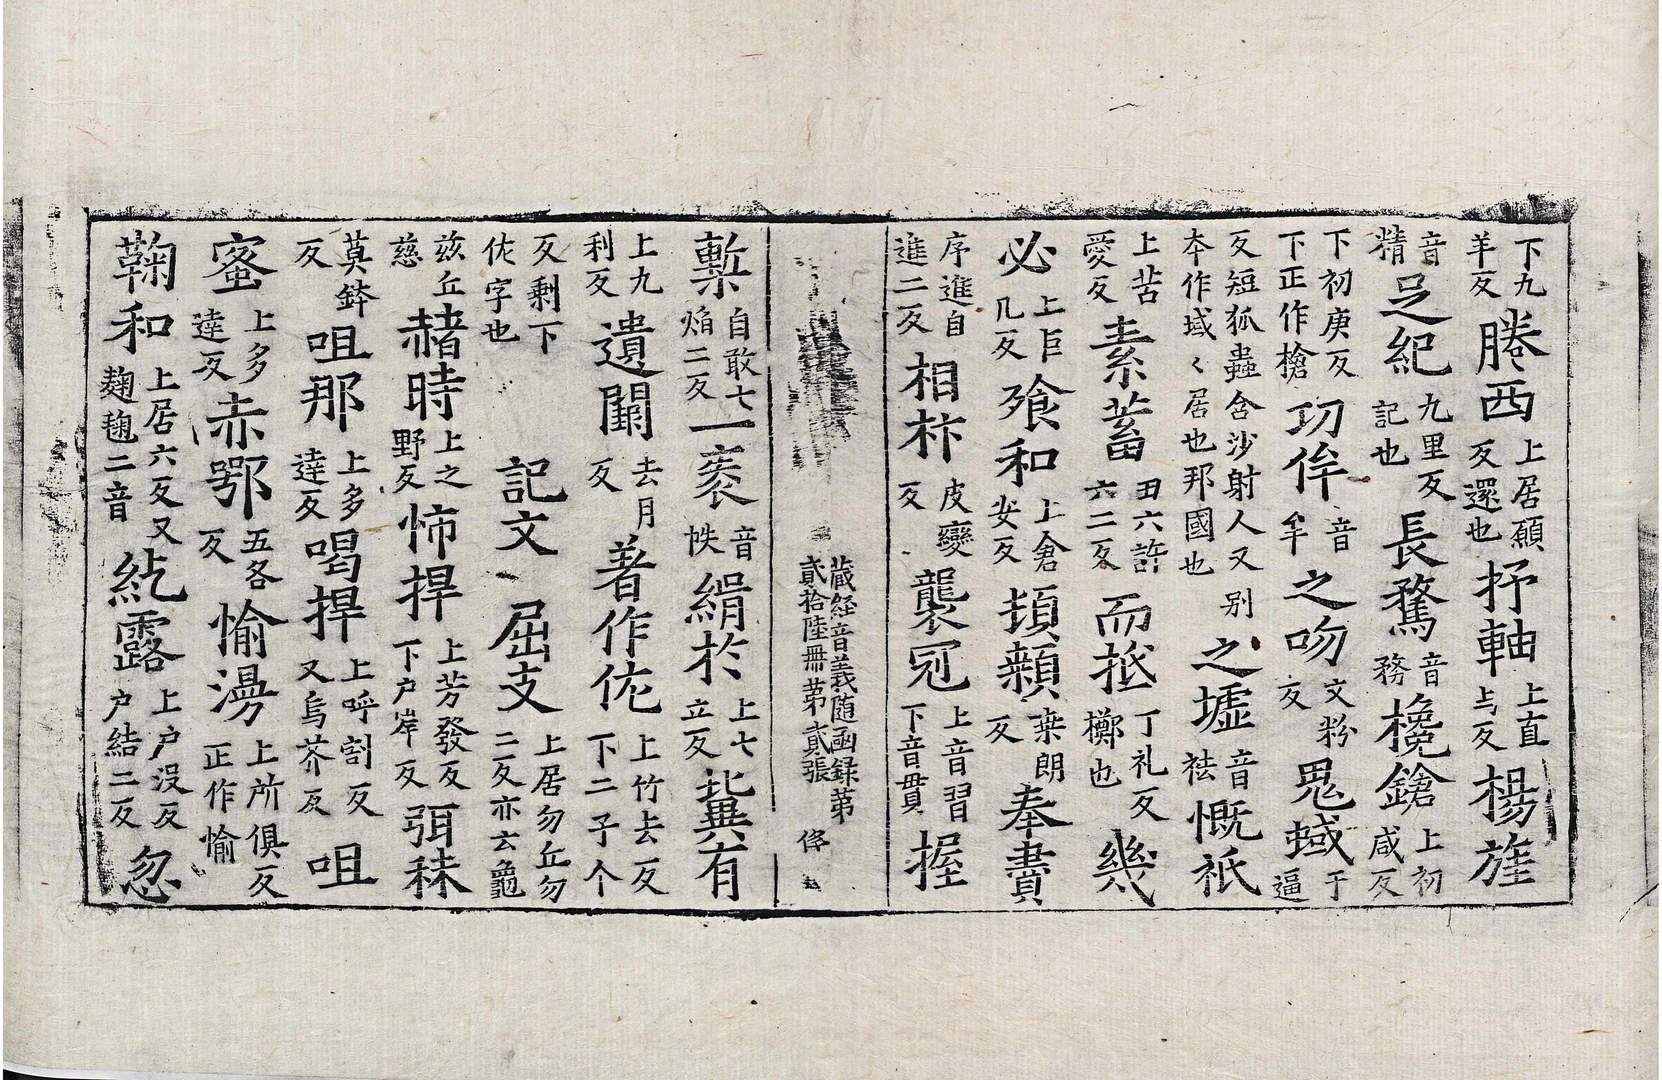 下九羊反 𰯌西 上居願反還也 抒軸 上直与反 楊旌
音精 足紀 九里反記也 長騖 音務 欃鎗 上初咸反
下初庚反下正作槍 㓛侔 音牟 之吻 文粉反 鬼蜮 于逼
反短狐蟲含沙射人又别本作域〻居也邦國也 之墟 音袪 慨祇
上苦愛反 素蓄 丑六許六二反 而抵 丁礼反擲也 幾
必 上巨几反 飱和 上倉安反 頡顙 桒朗反 奉賮
序進自進二反 相柞 皮變反 襲冠 上音習下音貫 握
藏経音義随函錄苐貳拾陸冊苐貳張 俢
槧 自敢七焰二反 一袠 音帙 緝於 上七立反 冀有
上九利反 遺闕 去月反 著作佐 上竹去反下二子个
反剩下佐字也 記文 屈支 上居勿丘勿二反亦云龜
兹丘慈 赭時 上之野反 怖捍 上芳發反下户岸反 弭秣
莫鉢反 呾那 上多達反 喝捍 上呼割反又烏芥反 呾
蜜 上多達反 赤鄂 五各反 愉漫 上所俱反正作愉
鞠和 上居六反又麹毱二音 紇露 上户没反户結二反 忽